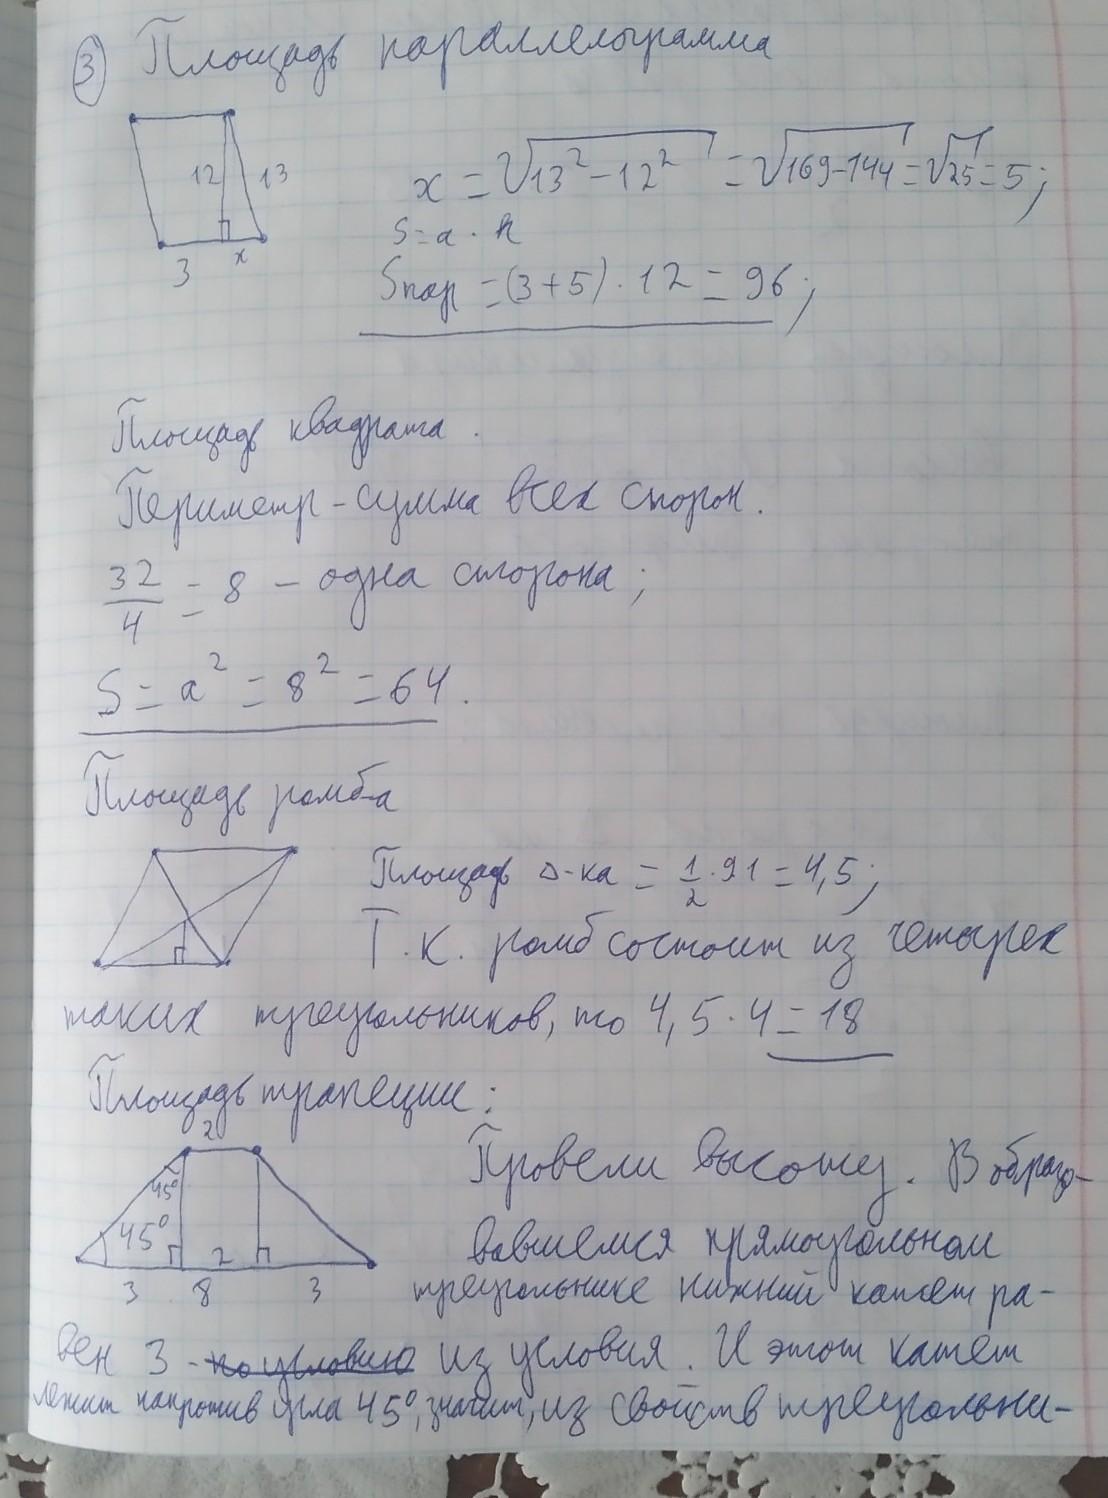 3 Площадь параллелограмма
12 13
3 x
x = √13² - 12² = √169-144 = √25 = 5;
S = a · h
Sпар = (3+5) · 12 = 96;
Площадь квадрата.
Периметр - сумма всех сторон.
32/4 = 8 - одна сторона;
S = a² = 8² = 64.
Площадь ромба
Площадь Δ-ка = 1/2 · 91 = 4,5;
Т.к. ромб состоит из четырех
таких треугольников, то 4,5 · 4 = 18
Площадь трапеции:
2
45°
45° 2
3 8 3
Провели высоту. В образо-
вавшемся прямоугольном
треугольнике нижний катет ра-
вен 3 - по условию из условия. И этот катет
лежит напротив угла 45°, значит, из свойств треугольни-